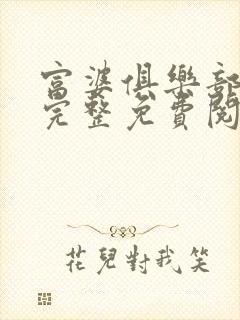 富婆俱樂部
完整免費閱
花兒對我笑